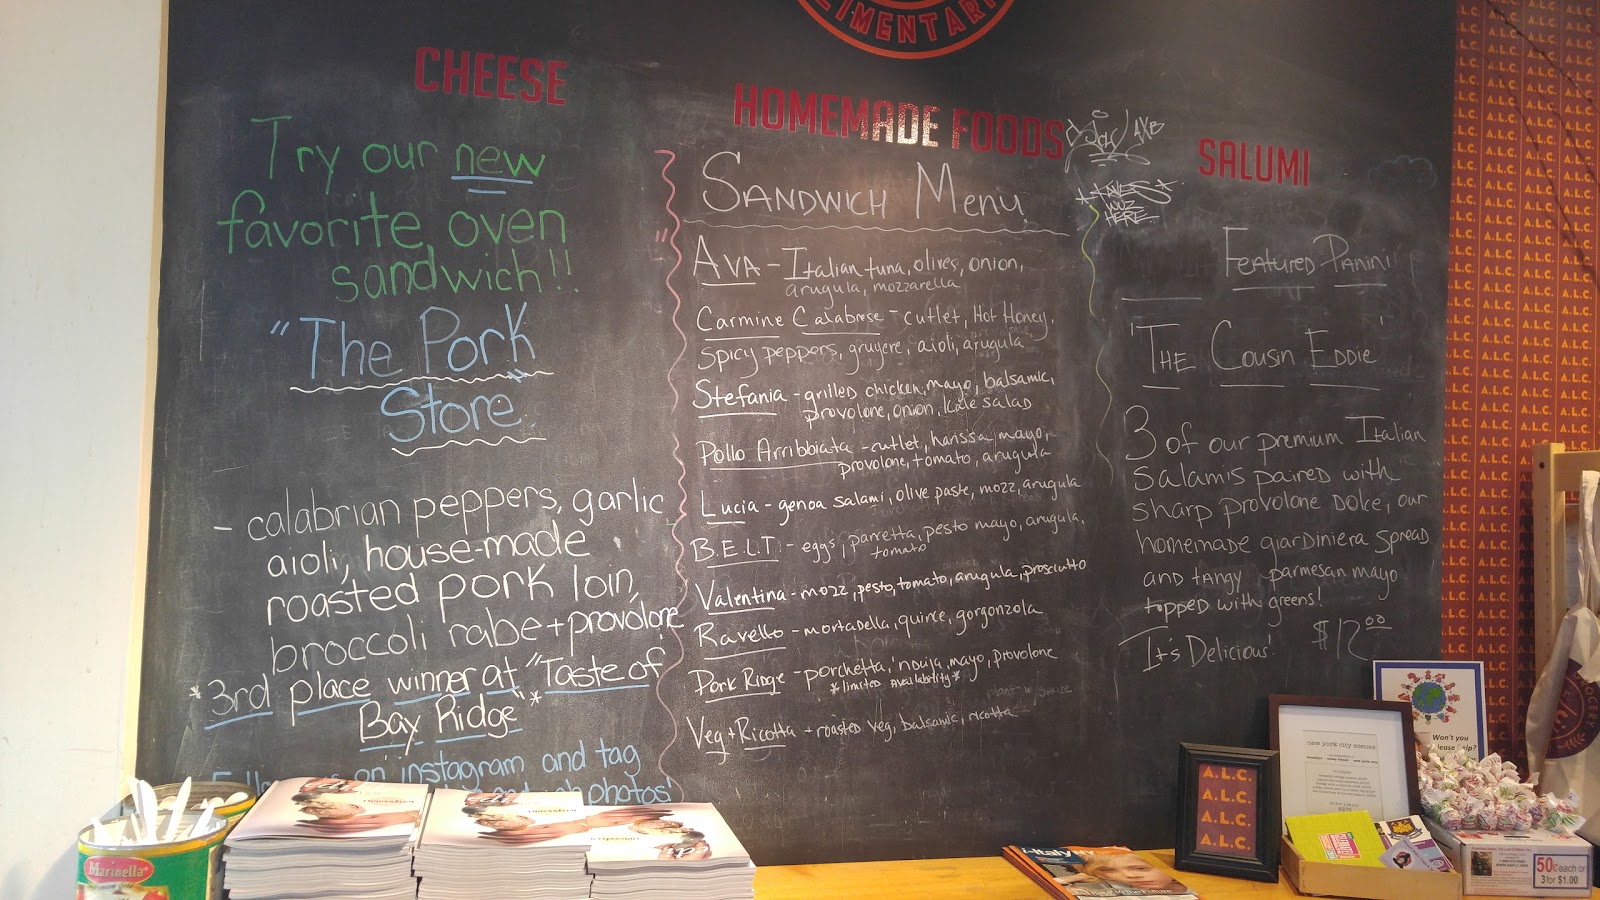 LIMENTARI
CHEESE
Try our new
favorite, oven
sandwich!!
"The Pork
Store"
- calabrian peppers, garlic
aioli, house-made
roasted pork loin,
broccoli rabe + provolone
*3rd place winner at "Taste of
Bay Ridge"*
on instagram and tag
photos!
HOMEMADE FOODS
SANDWICH MENU
AVA - Italian tuna, olives, onion,
arugula, mozzarella
Carmine Calabrese - cutlet, Hot Honey,
spicy peppers, gruyere, aioli, arugula
Stefania - grilled chicken, mayo, balsamic,
provolone, onion, kale salad
Pollo Arribbiata - cutlet, harissa mayo,
provolone, tomato, arugula
Lucia - genoa salami, olive paste, mozz, arugula
B.E.L.T. - eggs, panretta, pesto mayo, arugula,
tomato
Valentina - mozz, pesto, tomato, arugula, prosciutto
Ravello - mortadella, quince, gorgonzola
Pork Ridge - porchetta, 'nduja, mayo, provolone
*limited availability*
Veg + Ricotta + roasted veg, balsamic, ricotta
WUZ
HERE
SALUMI
FEATURED PANINI
'THE COUSIN EDDIE'
3 of our premium Italian
salamis paired with
sharp provolone dolce, our
homemade giardiniera spread
and tangy parmesan mayo
topped with greens!
It's Delicious! $12.00
Marinella
A.L.C.
A.L.C.
A.L.C.
A.L.C.
new york city scenes
Won't you
please help?
50¢ each or
3 for $1.00